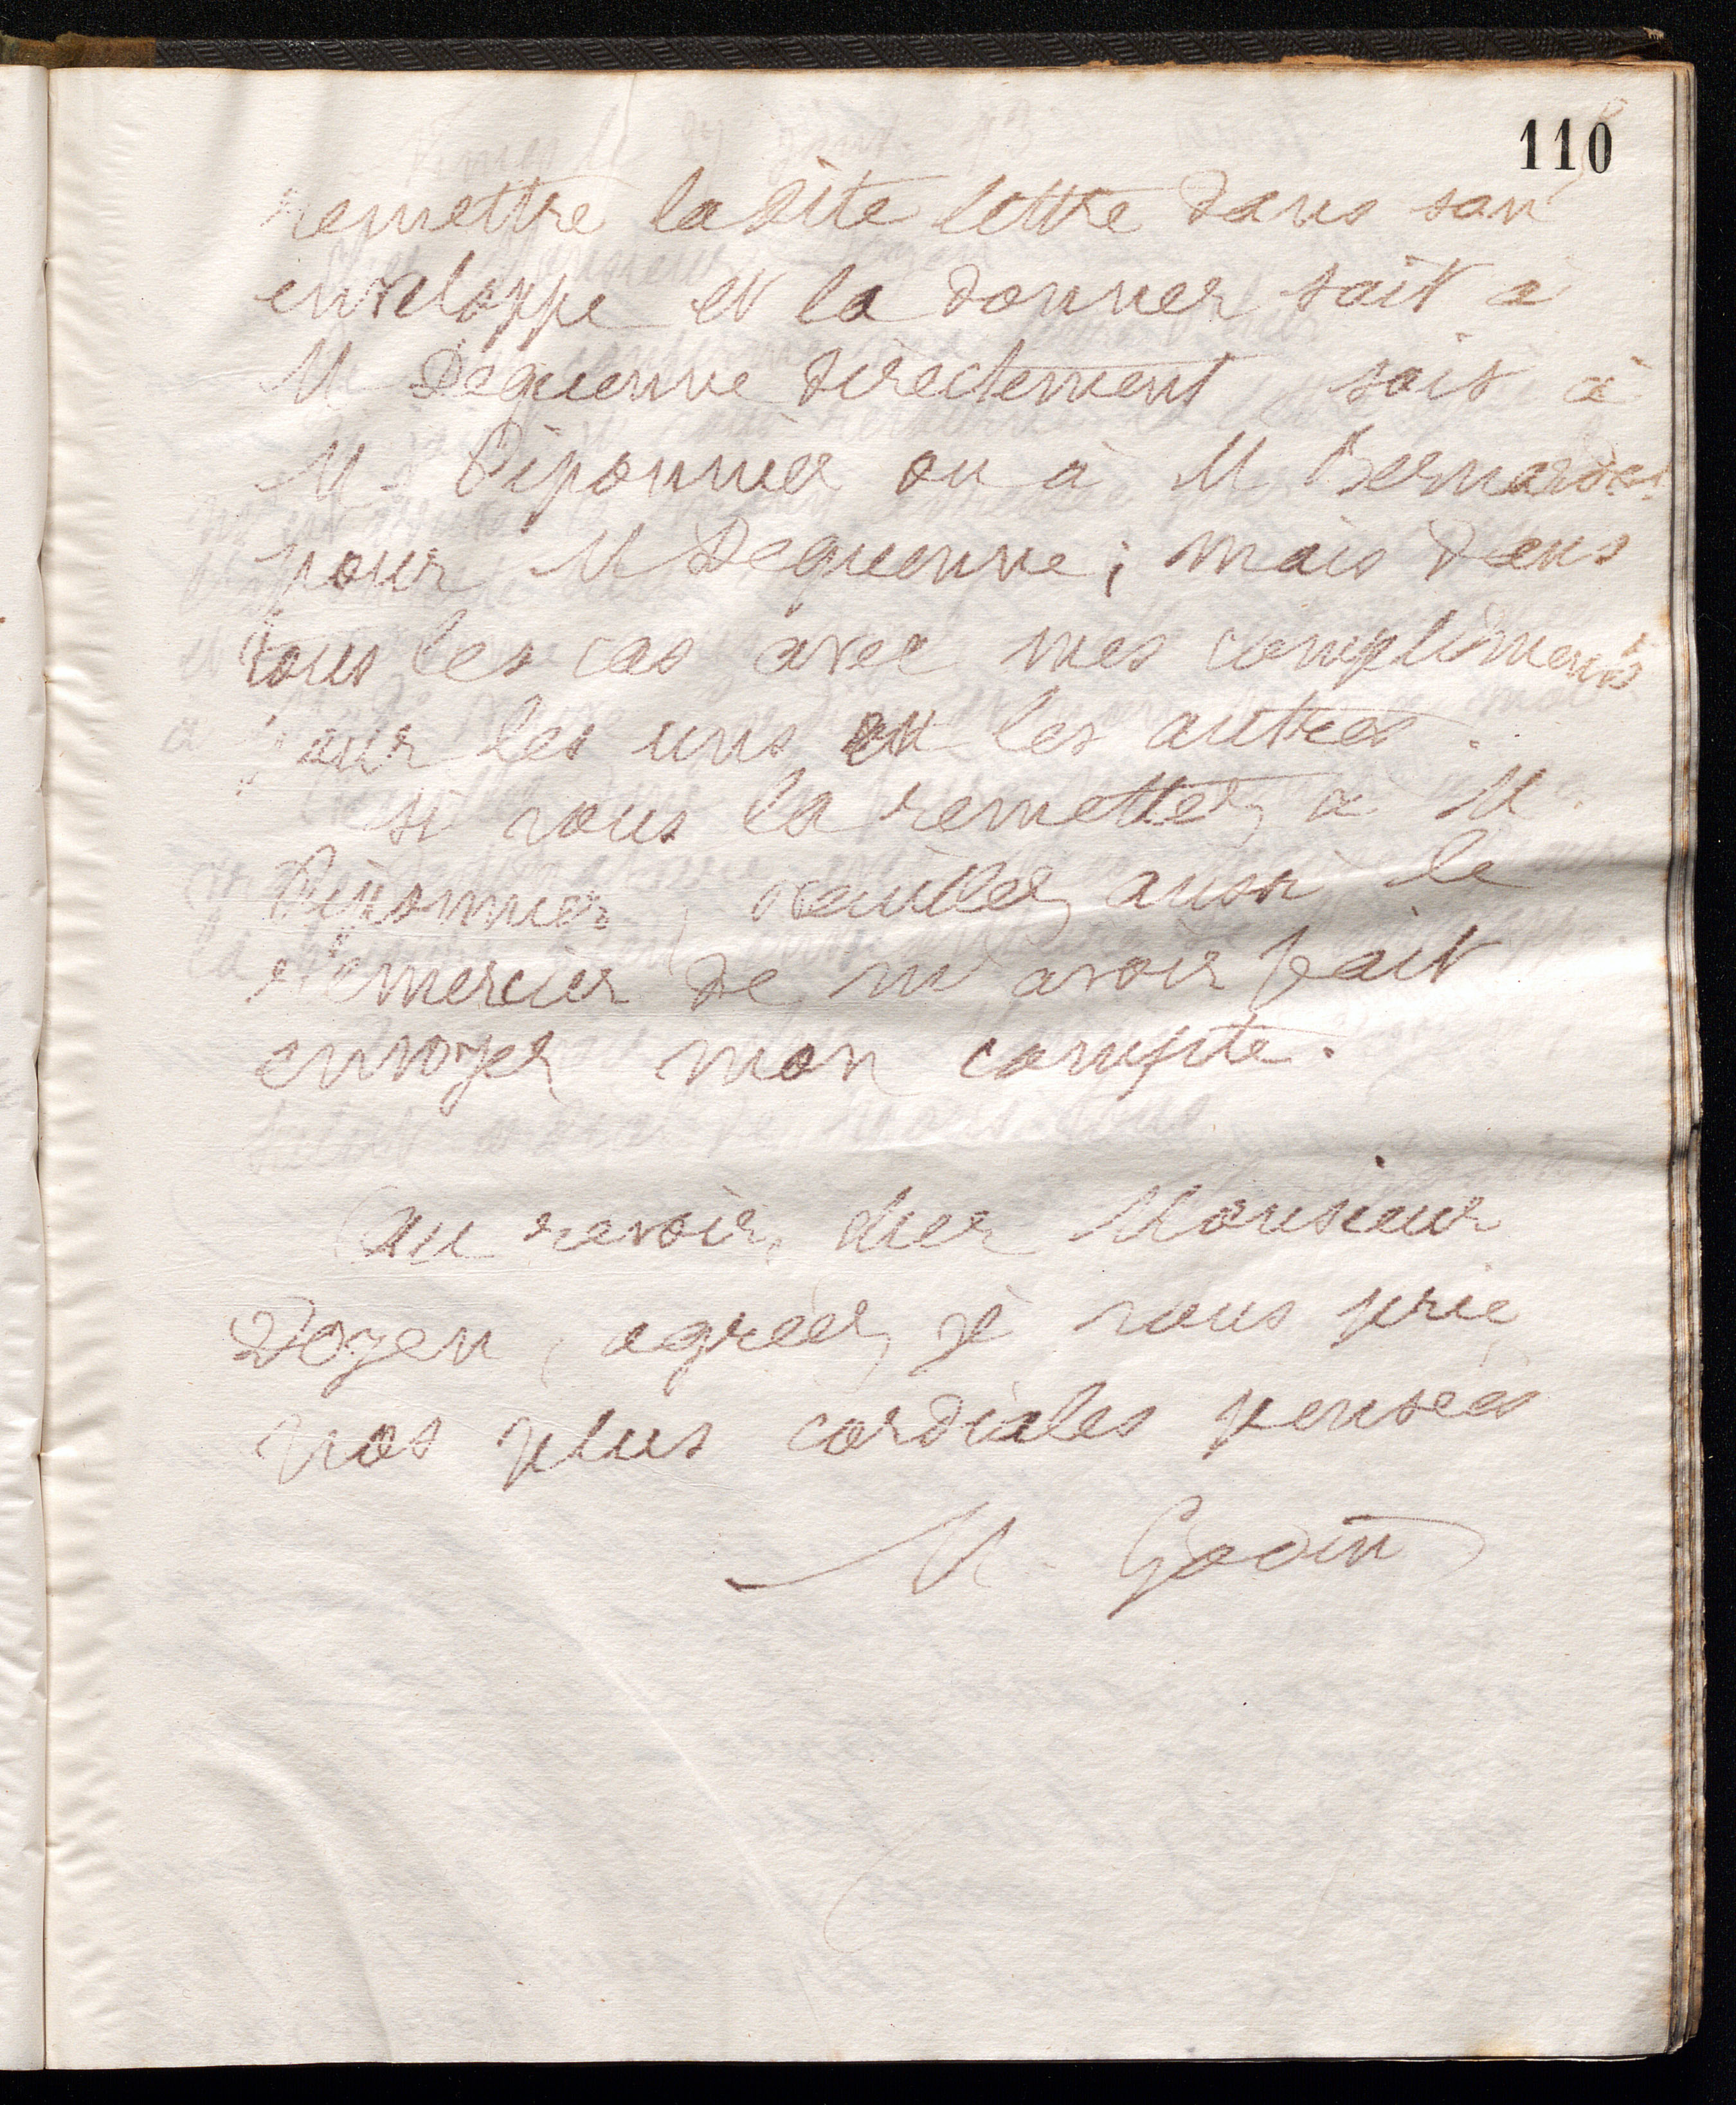 110
remettre la dite lettre dans son
enveloppe et la donner soit à
M Dequenne directement soit à
M. Piponnier ou à M Bernardot
pour M Dequenne ; mais dans
tous les cas avec mes compliments
pour les uns ou les autres.
Si vous la remettez à M.
Piponnier, veuillez aussi le
remercier de m'avoir fait
envoyer mon compte.
Au revoir, cher Monsieur
Doyen, agréez je vous prie
nos plus cordiales pensées
M. Godin